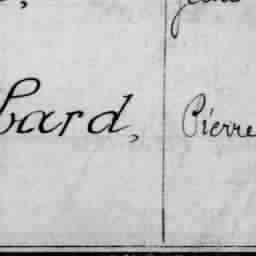 bard, Pierre